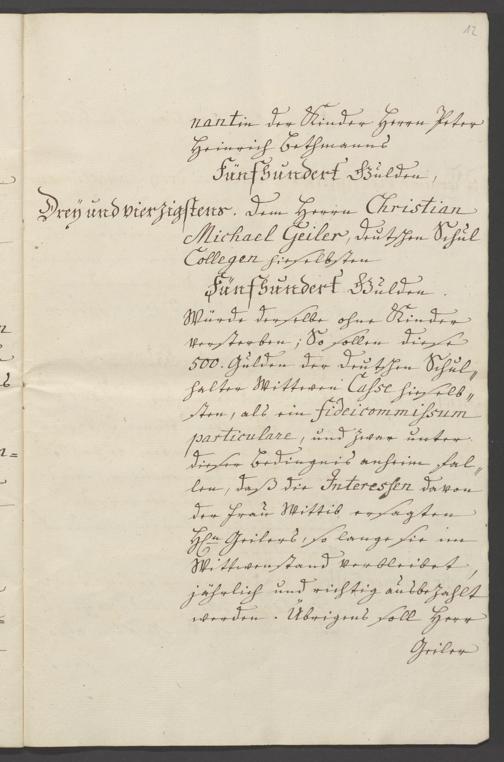 12
nantin der Kinder Herrn Peter
Heinrich Bethmanns
Fünfhundert Gulden,
Drey und vierzigstens. Dem Herrn Christian
Michael Geiler, deutschen Schul
Collegen hieselbsten
Fünfhundert Gulden.
Würde derselbe ohne Kinder
versterben; So sollen diese
500. Gulden der deutschen Schul„
halter Wittwen Casse hieselb„
sten, als ein fideicommissum
particulare, und zwar unter
dieser Bedingnis anheim fal„
len, daß die Interessen davon
der Frau Wittib ersagten
Hℓn Geilers, so lange sie im
Wittwenstand verbleibet,
jährlich und richtig ausbezahlt
werden. Übrigens soll Herr
Geiler